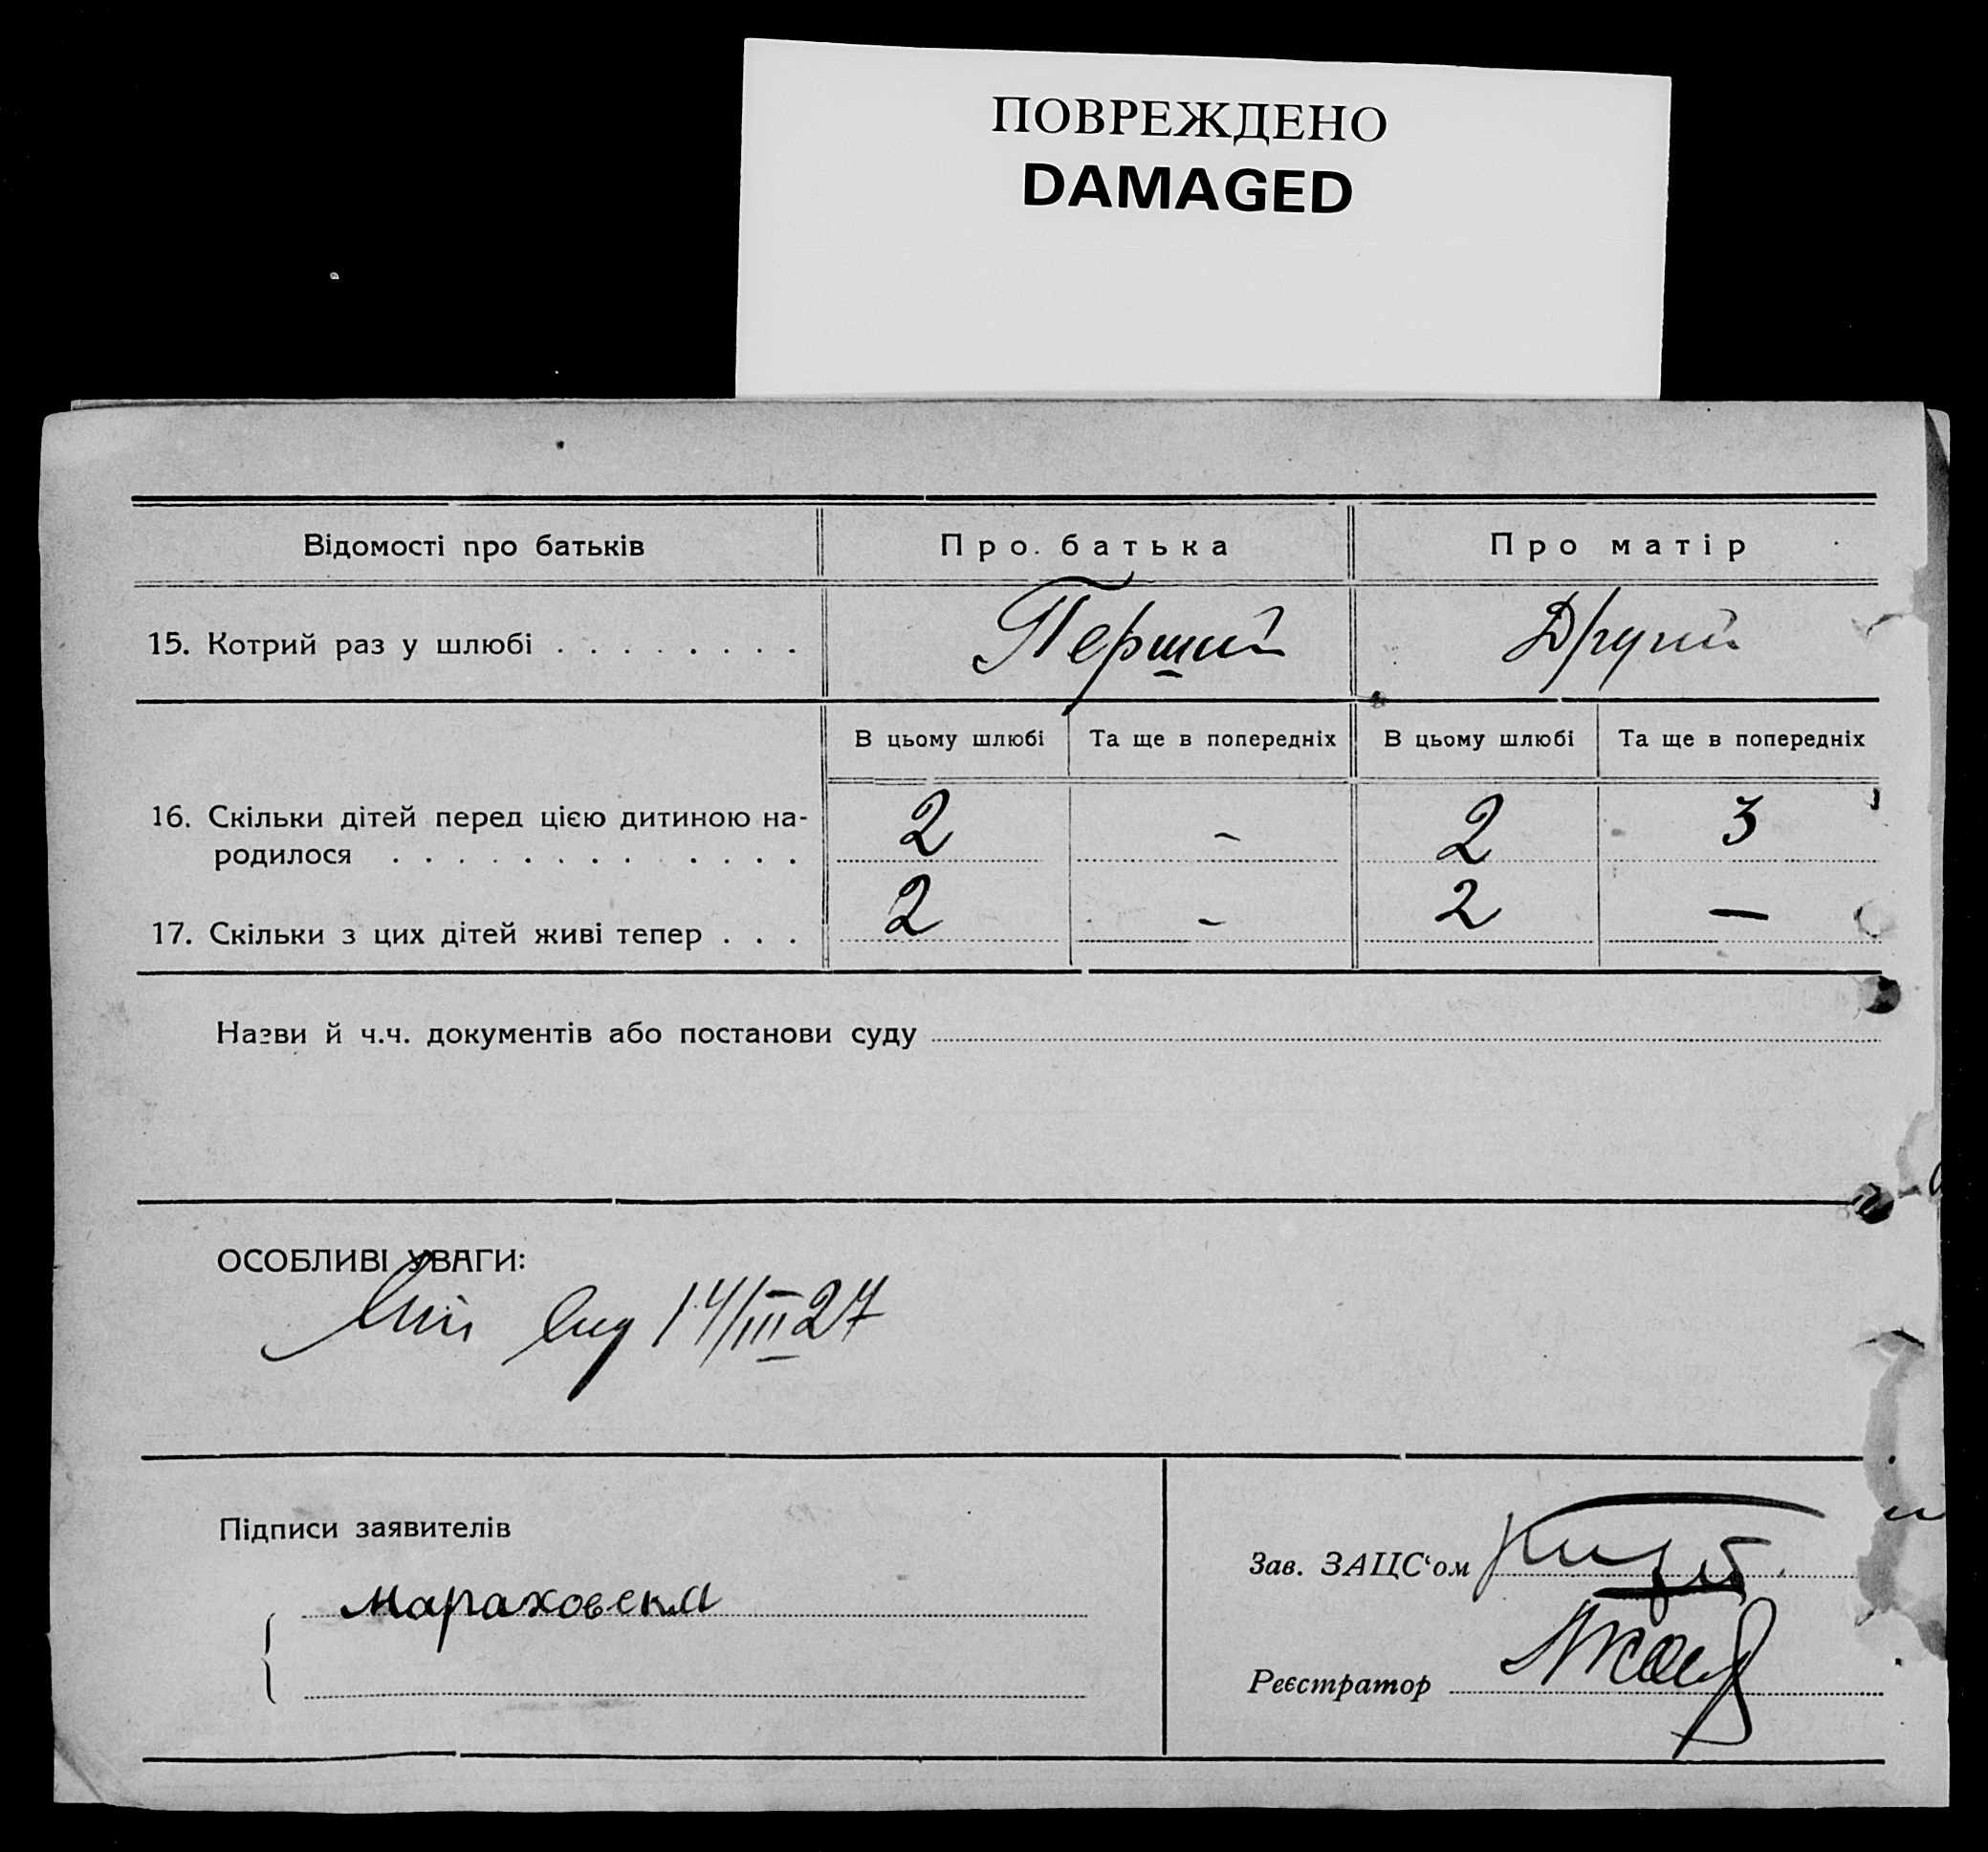 ПОВРЕЖДЕНО
DAMAGED
Відомості про батьків Про батька Про матір
15. Котрий раз у шлюбі . . . . . . . . Перший Другий
В цьому шлюбі Та ще в попередніх В цьому шлюбі Та ще в попередніх
16. Скільки дітей перед цією дитиною на-
родилося . . . . . . . . . . . 2 - 2 3
17. Скільки з цих дітей живі тепер . . . 2 - 2 —
Назви й ч.ч. документів або постанови суду
ОСОБЛИВІ УВАГИ:
14/III 27
Підписи заявителів
Мараховска
Зав. ЗАЦС'ом
Реєстратор